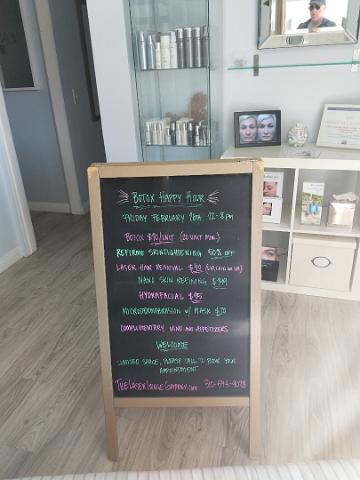 Botox Happy Hour
Friday February 12-8pm
Botox $90/unit (20 unit min.)
Skintightening 50% off
Laser Hair Removal $90
Nano Skin Refining
Hydrafacial $95
Microdermabrasion w/ Mask
Complimentary wine and appetizers
Welcome
Limited space, please call to book your
appointment
TheLaserImageCompany.com